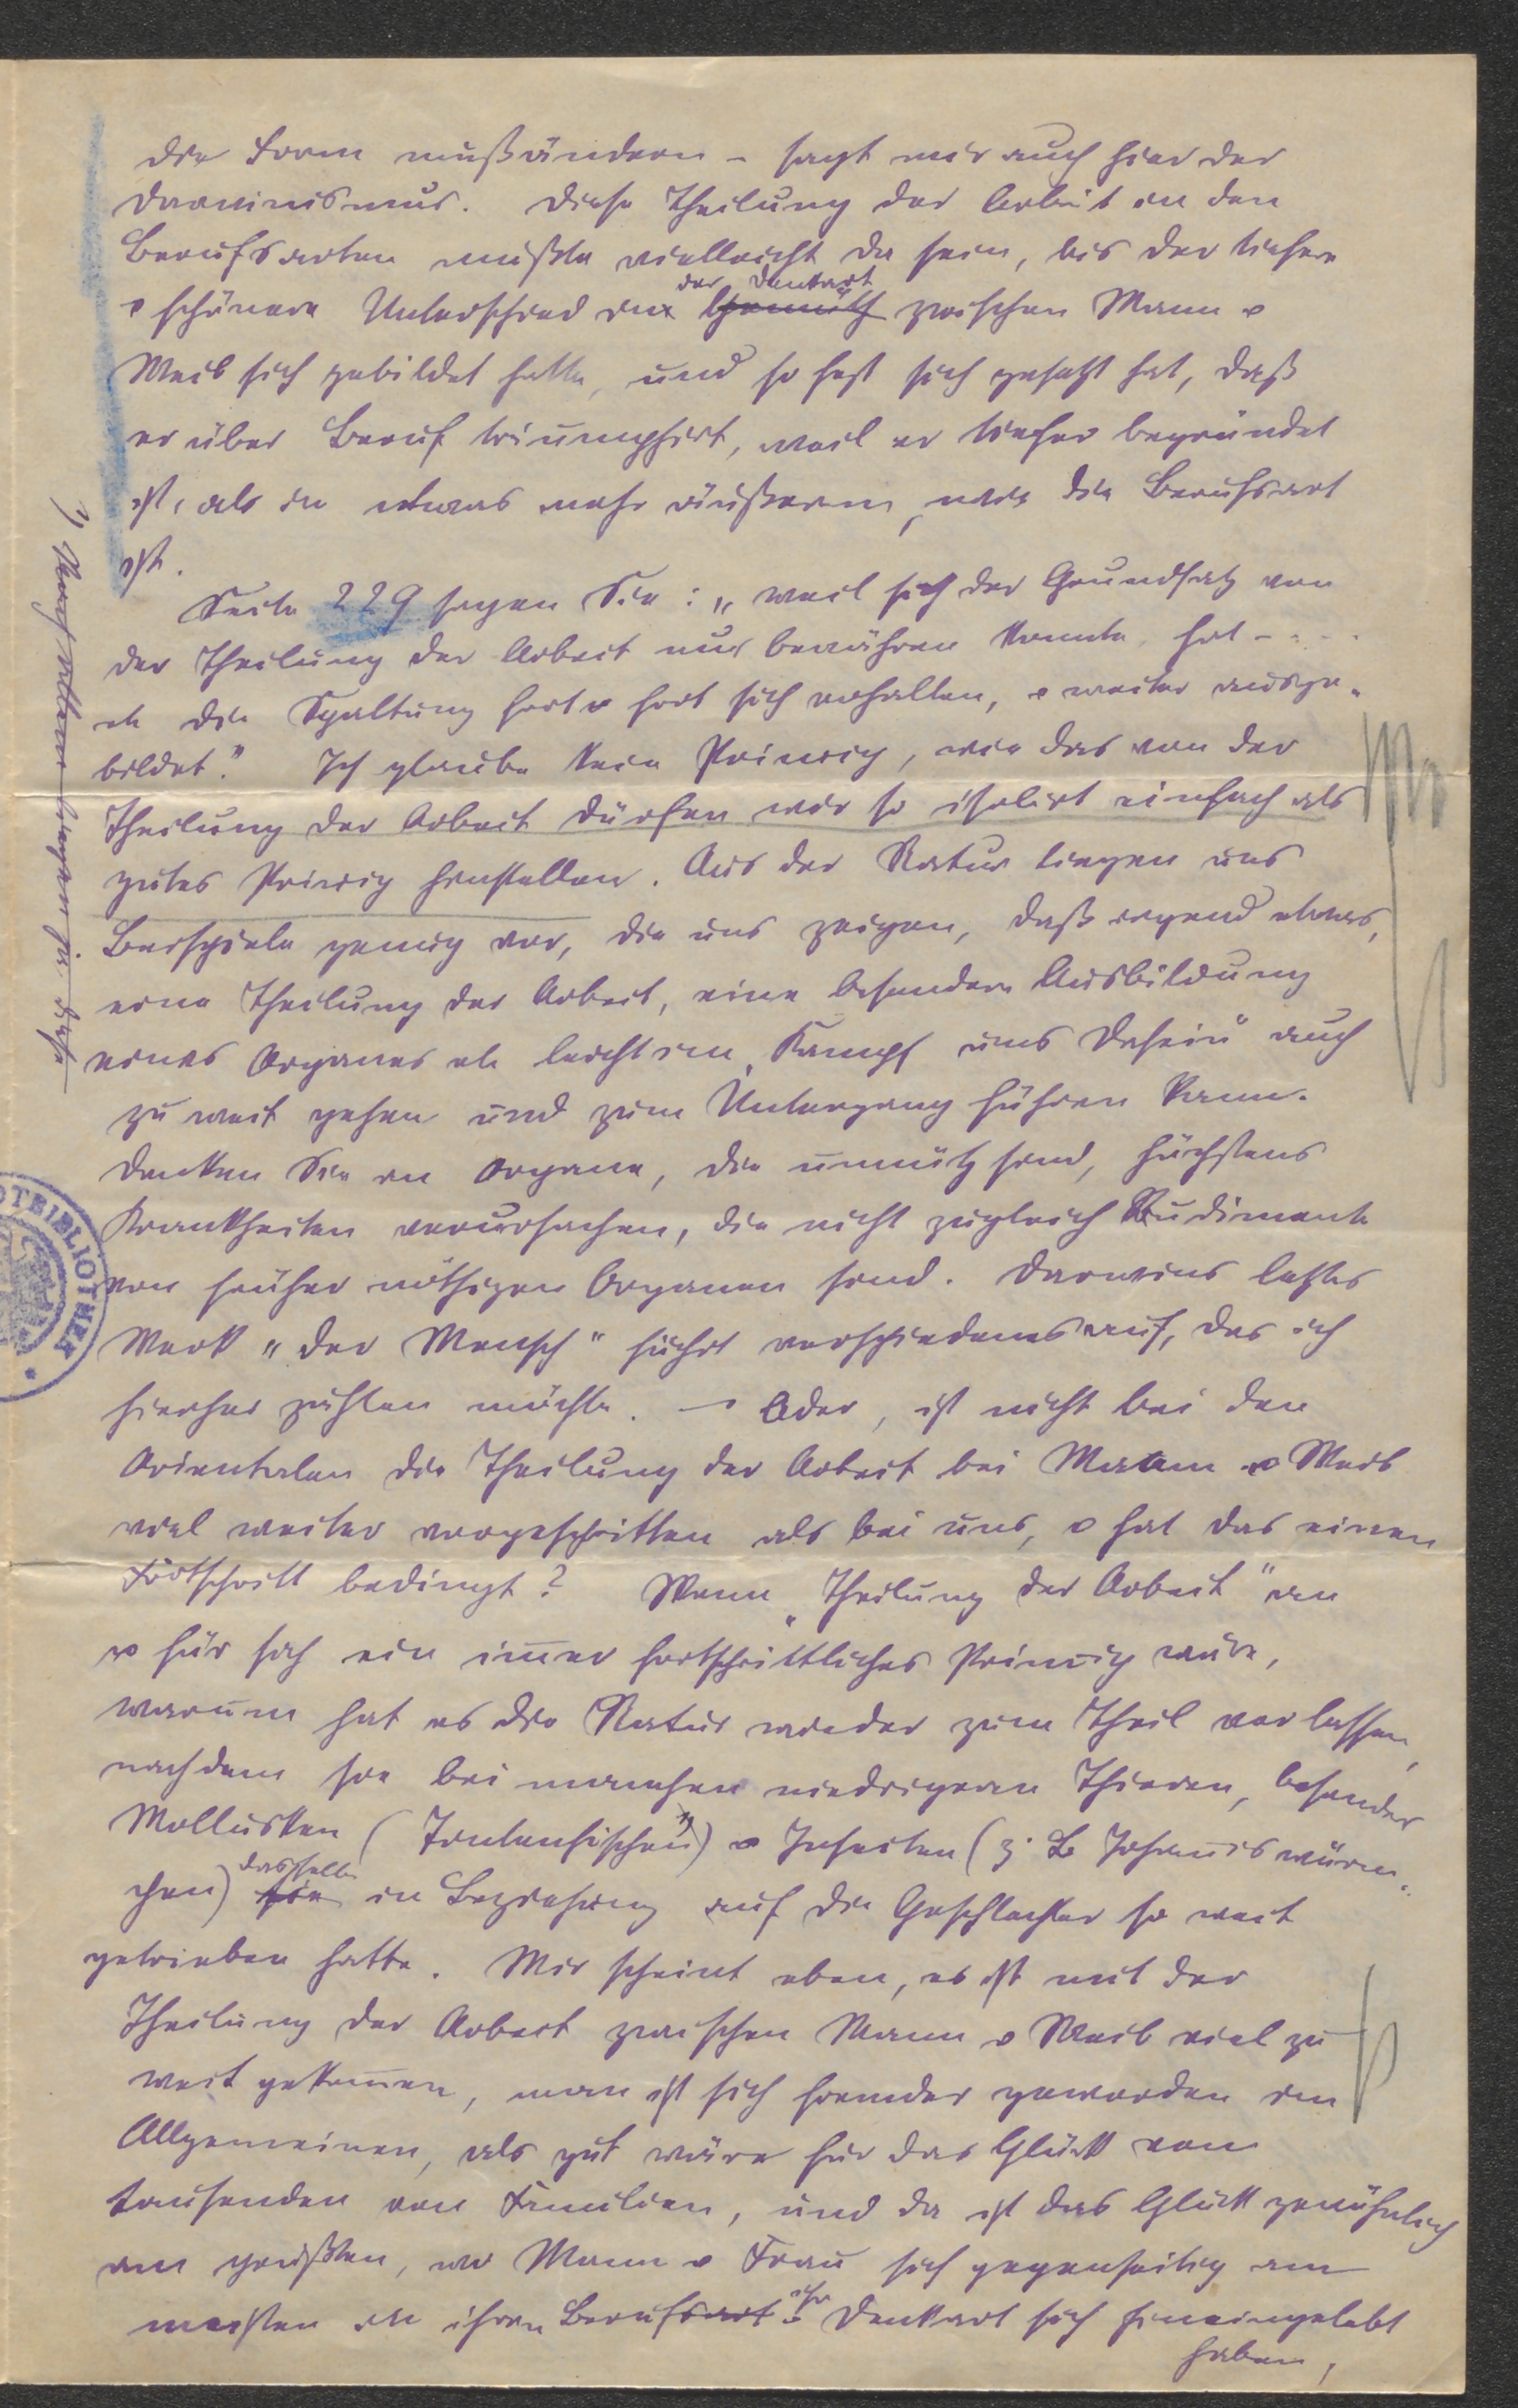 die Form muß ändern – sagt mir auch hier der
Darwinismus. Diese Theilung der Arbeit in den
Berufsarten mußte vielleicht da sein, bis der tiefere
u schönere Unterschied der Denkart zwischen Mann u
Weib sich gebildet hatte, und so fest sich gesetzt hat, daß
er über Beruf triumphirt, weil er tiefer begründet
ist, als in etwas mehr äußerem, wie die Berufsart
ist.
Seite 229 sagen Sie: „weil sich der Grundsatz von
der Theilung der Arbeit nur bewähren konnte, hat - - - -
die Spaltung fort u fort sich erhalten, u weiter ausge-
bildet." Ich glaube kein Prinzip, wie das von der
Theilung der Arbeit dürfen wir so isolirt einfach als
gutes Prinzip hinstellen. Aus der Natur liegen uns
Beispiele genug vor, die uns zeigen, daß irgend etwas,
eine Theilung der Arbeit, eine besondere Ausbildung
eines Organes etc leicht im „Kampf ums Dasein" auch
zu weit gehen und zum Untergang führen kann.
Denken Sie an Organe, die unnütz sind, höchstens
Krankheiten verursachen, die nicht zugleich Rudimente
von früher nöthigen Organen sind. Darwins letztes
Werk „der Mensch" führt verschiedenes auf, das ich
hierher zählen möchte. – Oder, ist nicht bei den
Orientalen die Theilung der Arbeit bei Mann u Weib
viel weiter vorgeschritten als bei uns, u hat das einen
Fortschritt bedingt? Wenn „Theilung der Arbeit" an
u für sich ein im̄er fortschrittliches Prinzip wäre,
warum hat es die Natur wieder zum Theil verlassen,
nachdem sie bei manchen niedrigeren Thieren, besonders
Mollusken (Tintenfischen 1)) u Insecten (z. B. Johanniswürm-
chen) dasselbe in Beziehung auf die Geschlechter so weit
getrieben hatte. Mir scheint eben, es ist mit der
Theilung der Arbeit zwischen Mann u Weib viel zu
weit gekom̄en, man ist sich fremder geworden im
Allgemeinen, als gut wäre für das Glück von
tausenden von Familien, und da ist das Glück gewöhnlich
am größten, wo Mann u Frau sich gegenseitig am
meisten in ihren Beruf u ihre Denkart sich hineingelebt
haben,
1)